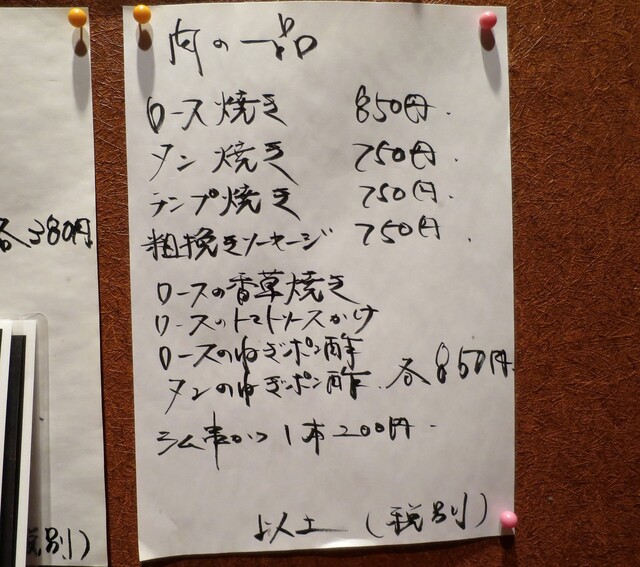 肉の一品
ロース焼き 850円.
タン焼き 750円.
ランプ焼き 750円.
粗挽きソーセージ 750円.
ロースの香草焼き
ロースのトマトソースかけ
ロースのねぎポン酢
タンのねぎポン酢. 各850円.
ラム串かつ 1本200円.
以上 (税別)
各380円
税別)